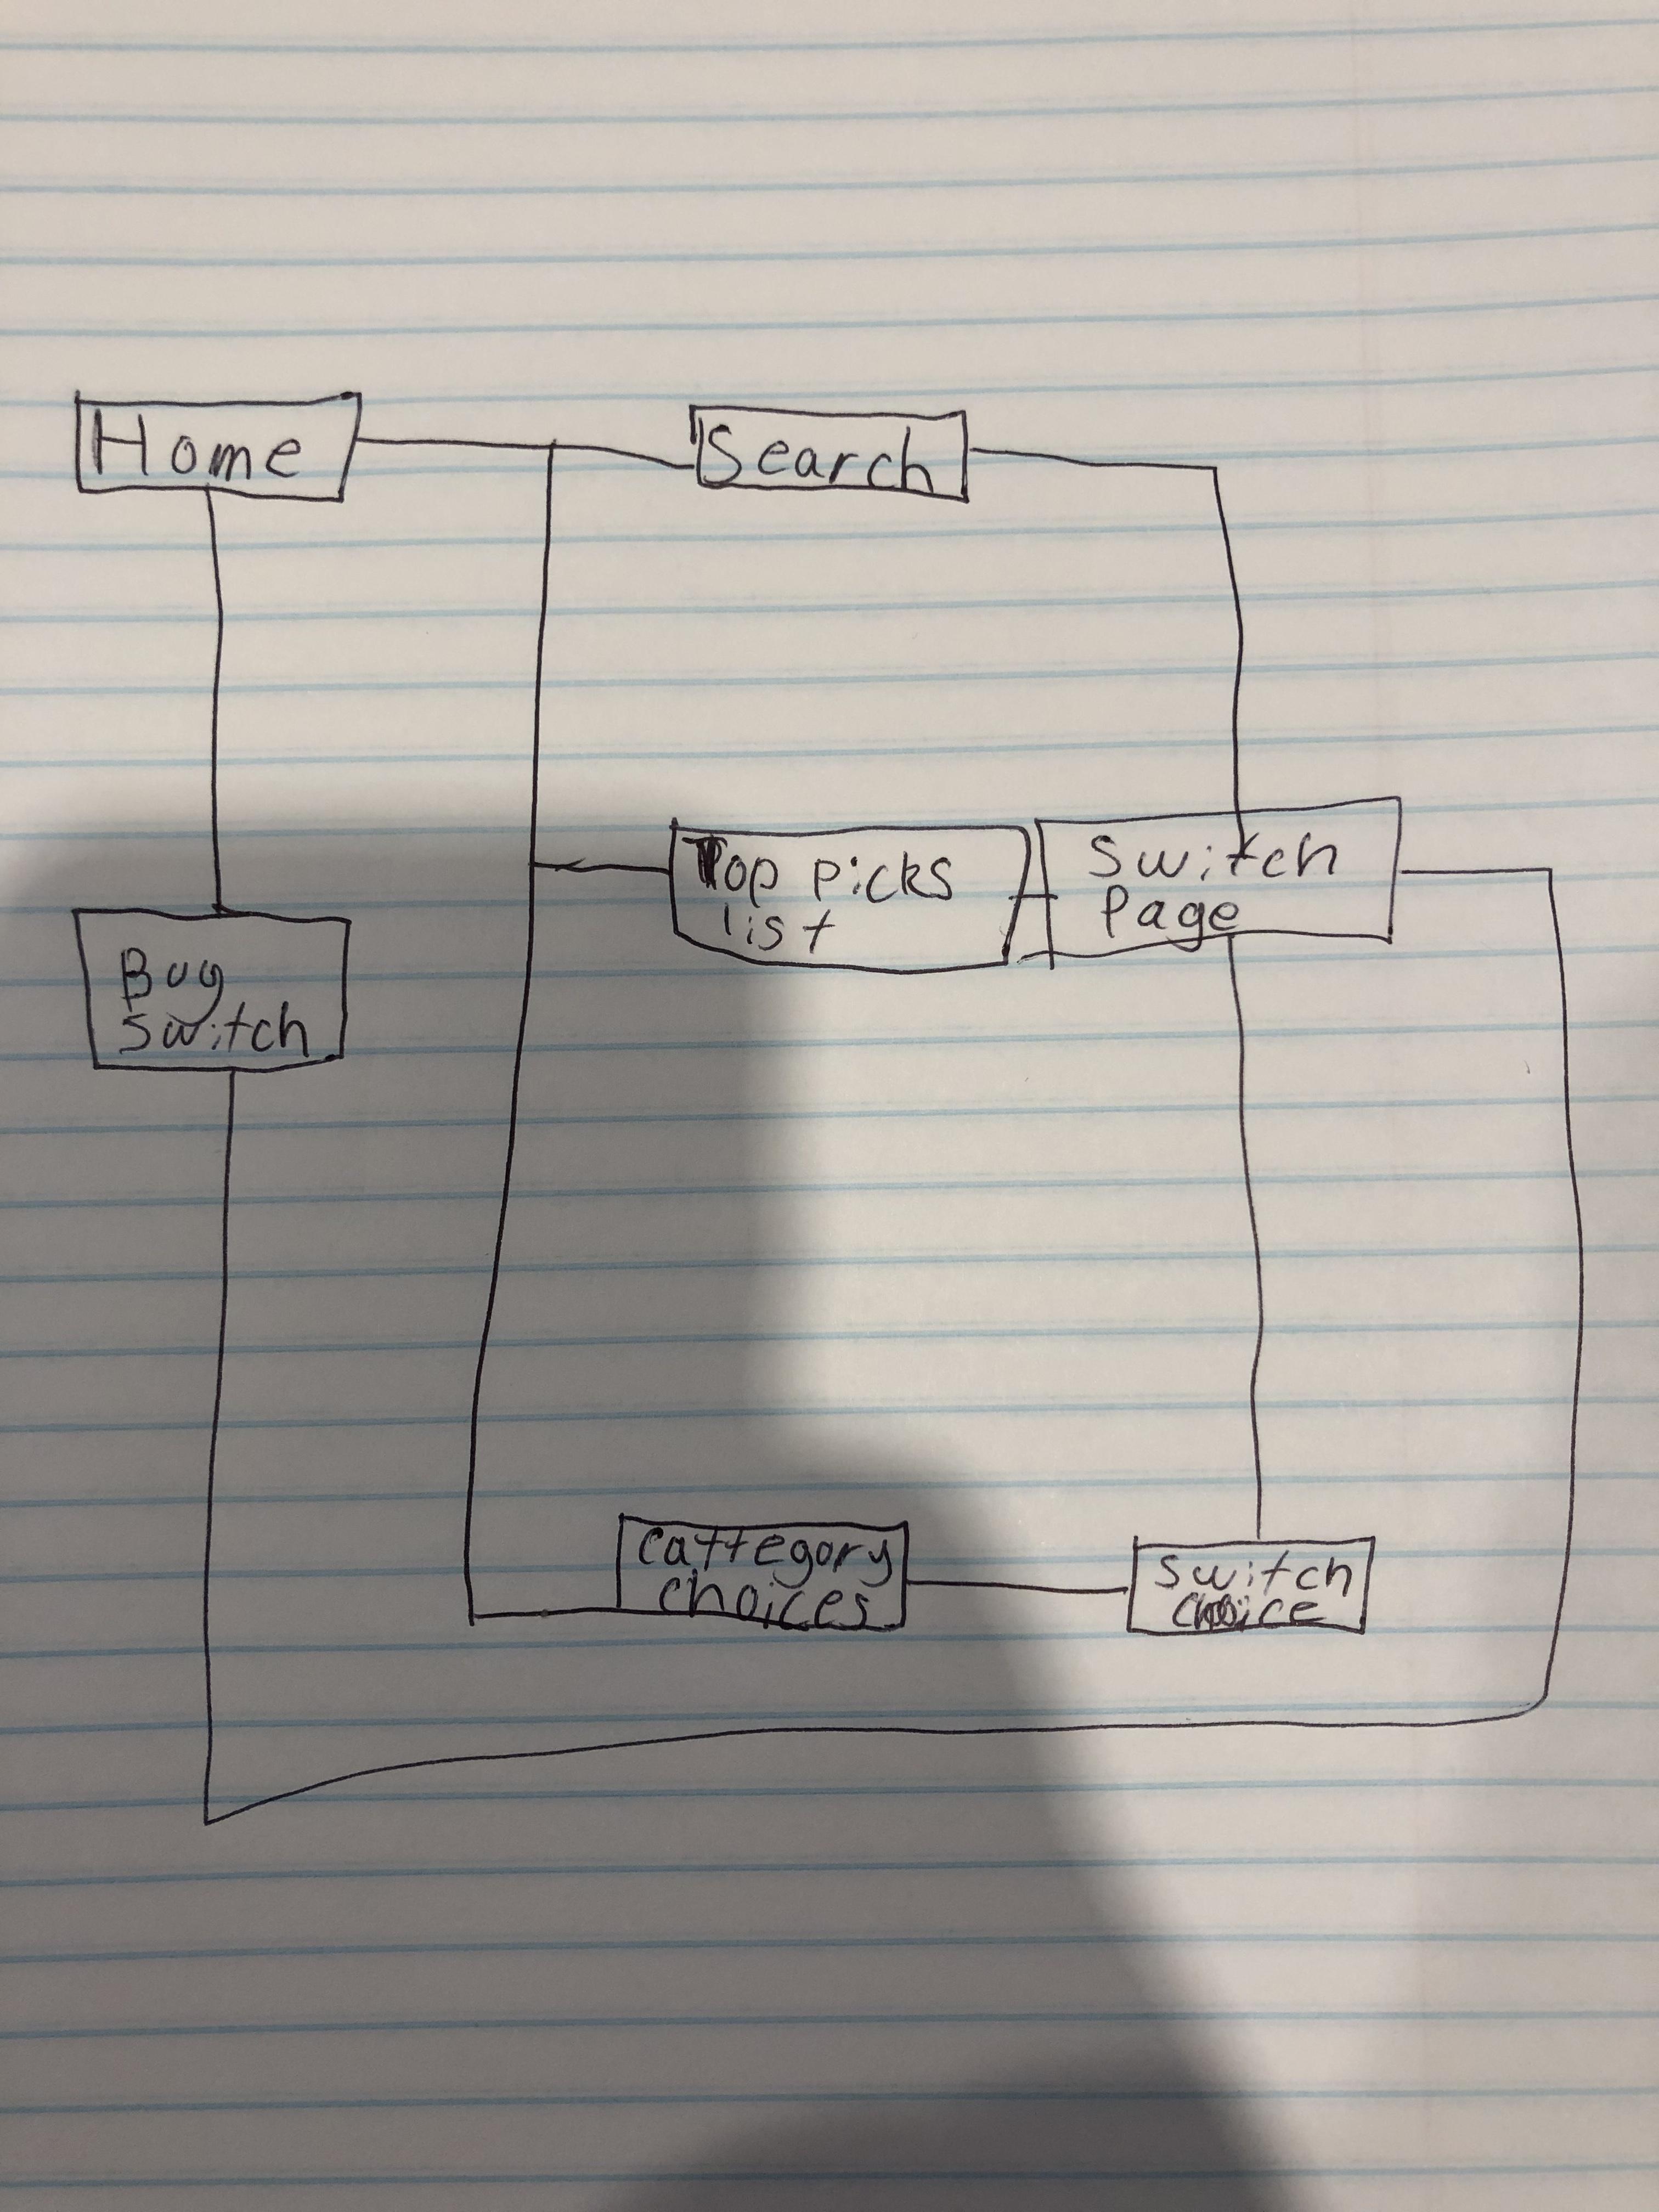 Home
Search
Top picks
list
Switch
Page
Bug
Switch
Cattegory
choices
Switch
Choice